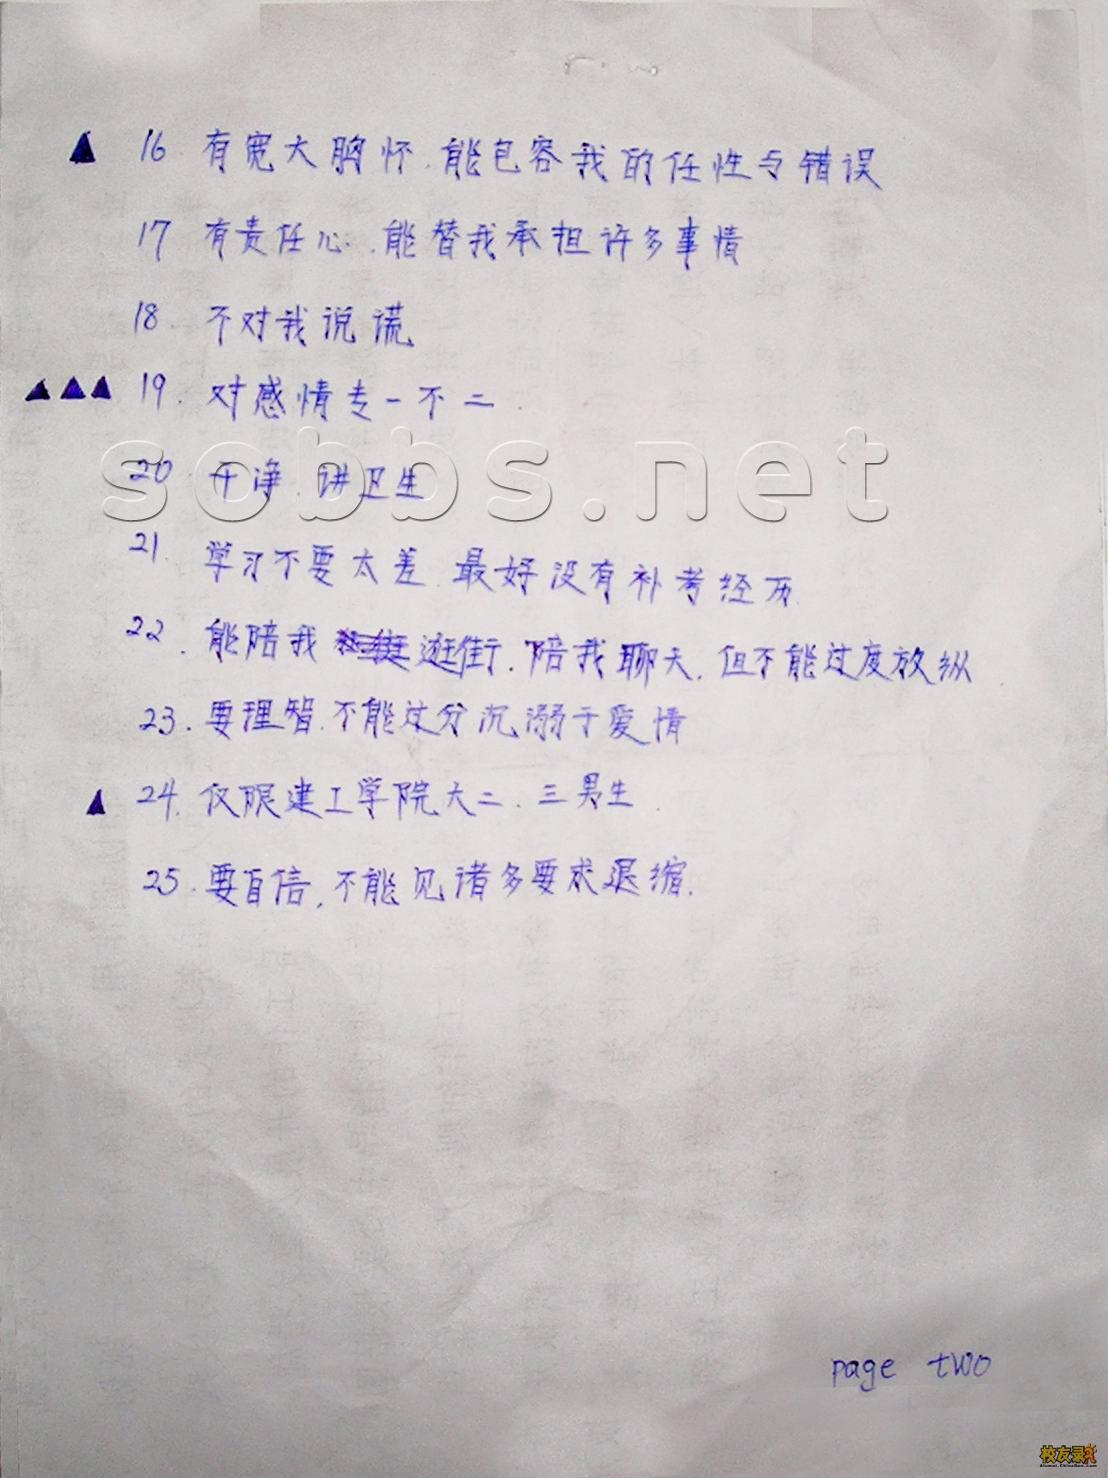 ▲ 16. 有宽大胸怀.能包容我的任性与错误
17 有责任心.能替我承担许多事情
18. 不对我说谎
▲▲▲ 19. 对感情专一不二.
sobbs.net
20 干净.讲卫生
21. 学习不要太差.最好没有补考经历.
22. 能陪我逛街.陪我聊天.但不能过度放纵
23. 要理智.不能过分沉溺于爱情
▲ 24. 仅限建工学院大二.三男生.
25. 要自信,不能见诸多要求退缩.
page two
校友录